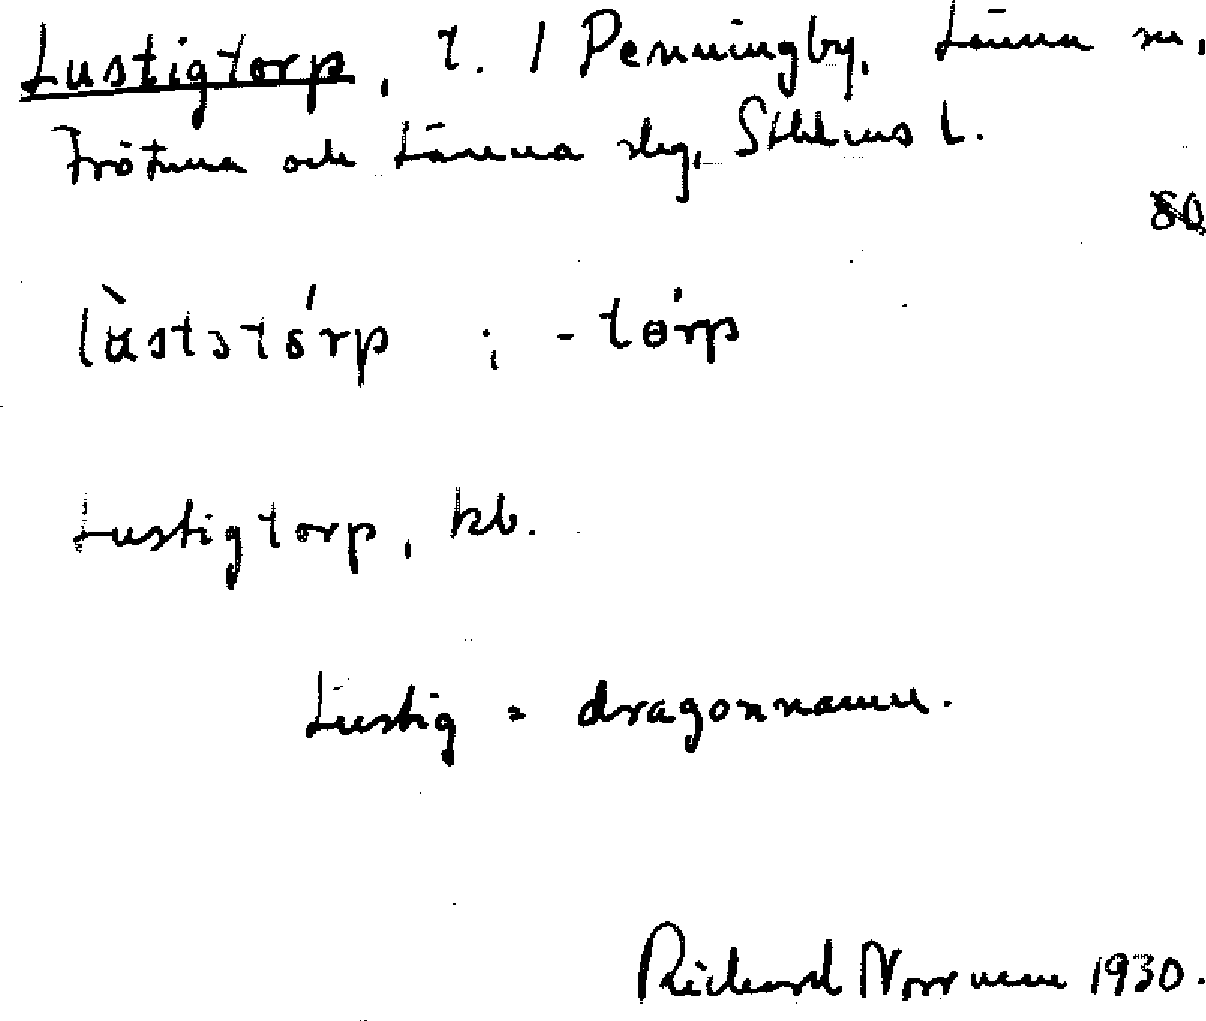 Lustigtorp, t. / Penningby, Länna sn,
Frötuna och Länna slg, Sthlms l.
lùststórp ; -tórp
Lustigtorp, kb.
Lustig = dragonnamn.
Richard Norrman 1930.